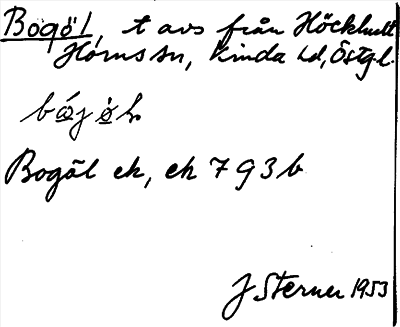 Bögöl, t avs från Höckhult
Horns sn, Kinda hd, Östgl.
Bogöl ek, ek 793b
J Sterner 1953